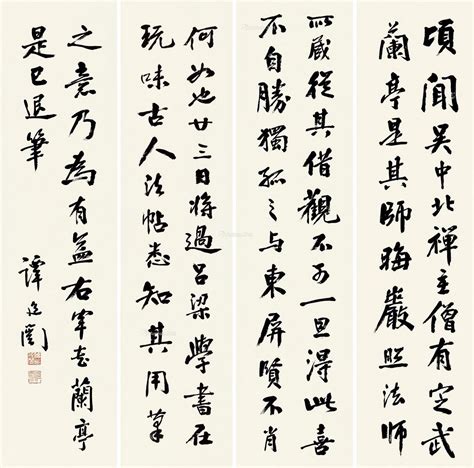 頃聞吳中北禪主僧有定武
蘭亭是其師晦巖照法師
所藏從其借觀不可一旦得此喜
不自勝獨孤之與東屏賢不肖
何如也廿三日將過呂梁學書在
玩味古人法帖悉知其用筆
之意乃為有益右軍書蘭亭
是已退筆
譚延闓